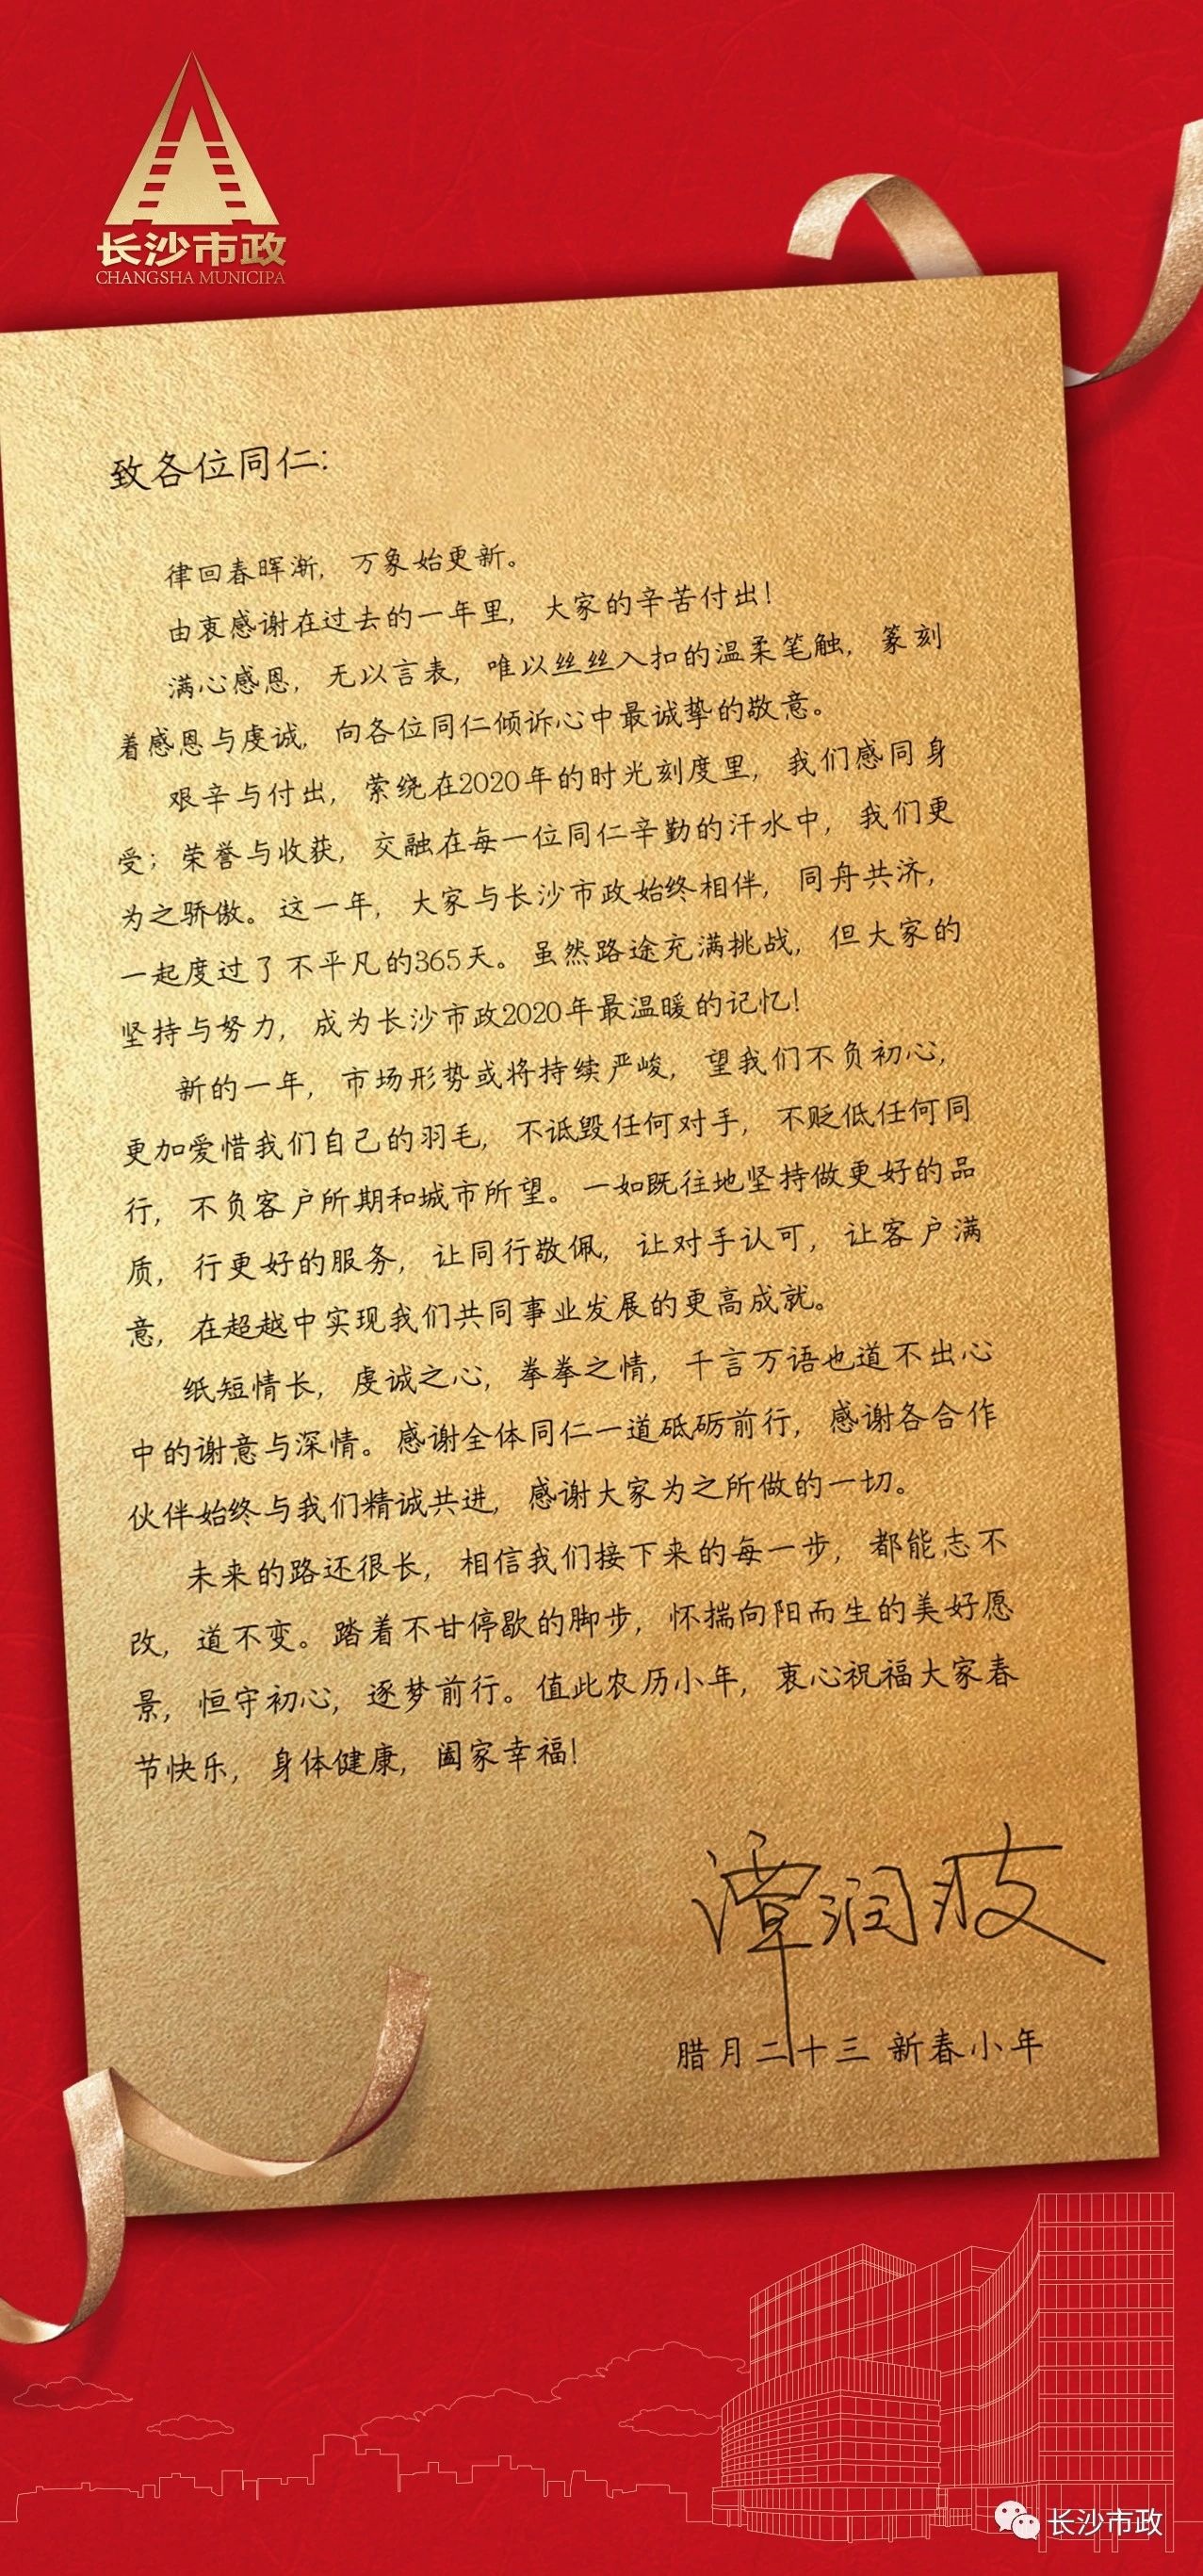 长沙市政
CHANGSHA MUNICIPA
致各位同仁:
律回春晖渐，万象始更新。
由衷感谢在过去的一年里，大家的辛苦付出！
满心感恩，无以言表，唯以丝丝入扣的温柔笔触，篆刻
着感恩与虔诚，向各位同仁倾诉心中最诚挚的敬意。
艰辛与付出，萦绕在2020年的时光刻度里，我们感同身
受；荣誉与收获，交融在每一位同仁辛勤的汗水中，我们更
为之骄傲。这一年，大家与长沙市政始终相伴，同舟共济，
一起度过了不平凡的365天。虽然路途充满挑战，但大家的
坚持与努力，成为长沙市政2020年最温暖的记忆！
新的一年，市场形势或将持续严峻，望我们不负初心，
更加爱惜我们自己的羽毛，不诋毁任何对手，不贬低任何同
行，不负客户所期和城市所望。一如既往地坚持做更好的品
质，行更好的服务，让同行敬佩，让对手认可，让客户满
意，在超越中实现我们共同事业发展的更高成就。
纸短情长，虔诚之心，拳拳之情，千言万语也道不出心
中的谢意与深情。感谢全体同仁一道砥砺前行，感谢各合作
伙伴始终与我们精诚共进，感谢大家为之所做的一切。
未来的路还很长，相信我们接下来的每一步，都能志不
改，道不变。踏着不甘停歇的脚步，怀揣向阳而生的美好愿
景，恒守初心，逐梦前行。值此农历小年，衷心祝福大家春
节快乐，身体健康，阖家幸福！
谭润波
腊月二十三 新春小年
长沙市政